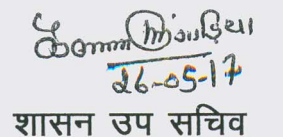 26-05-17
शासन उप सचिव